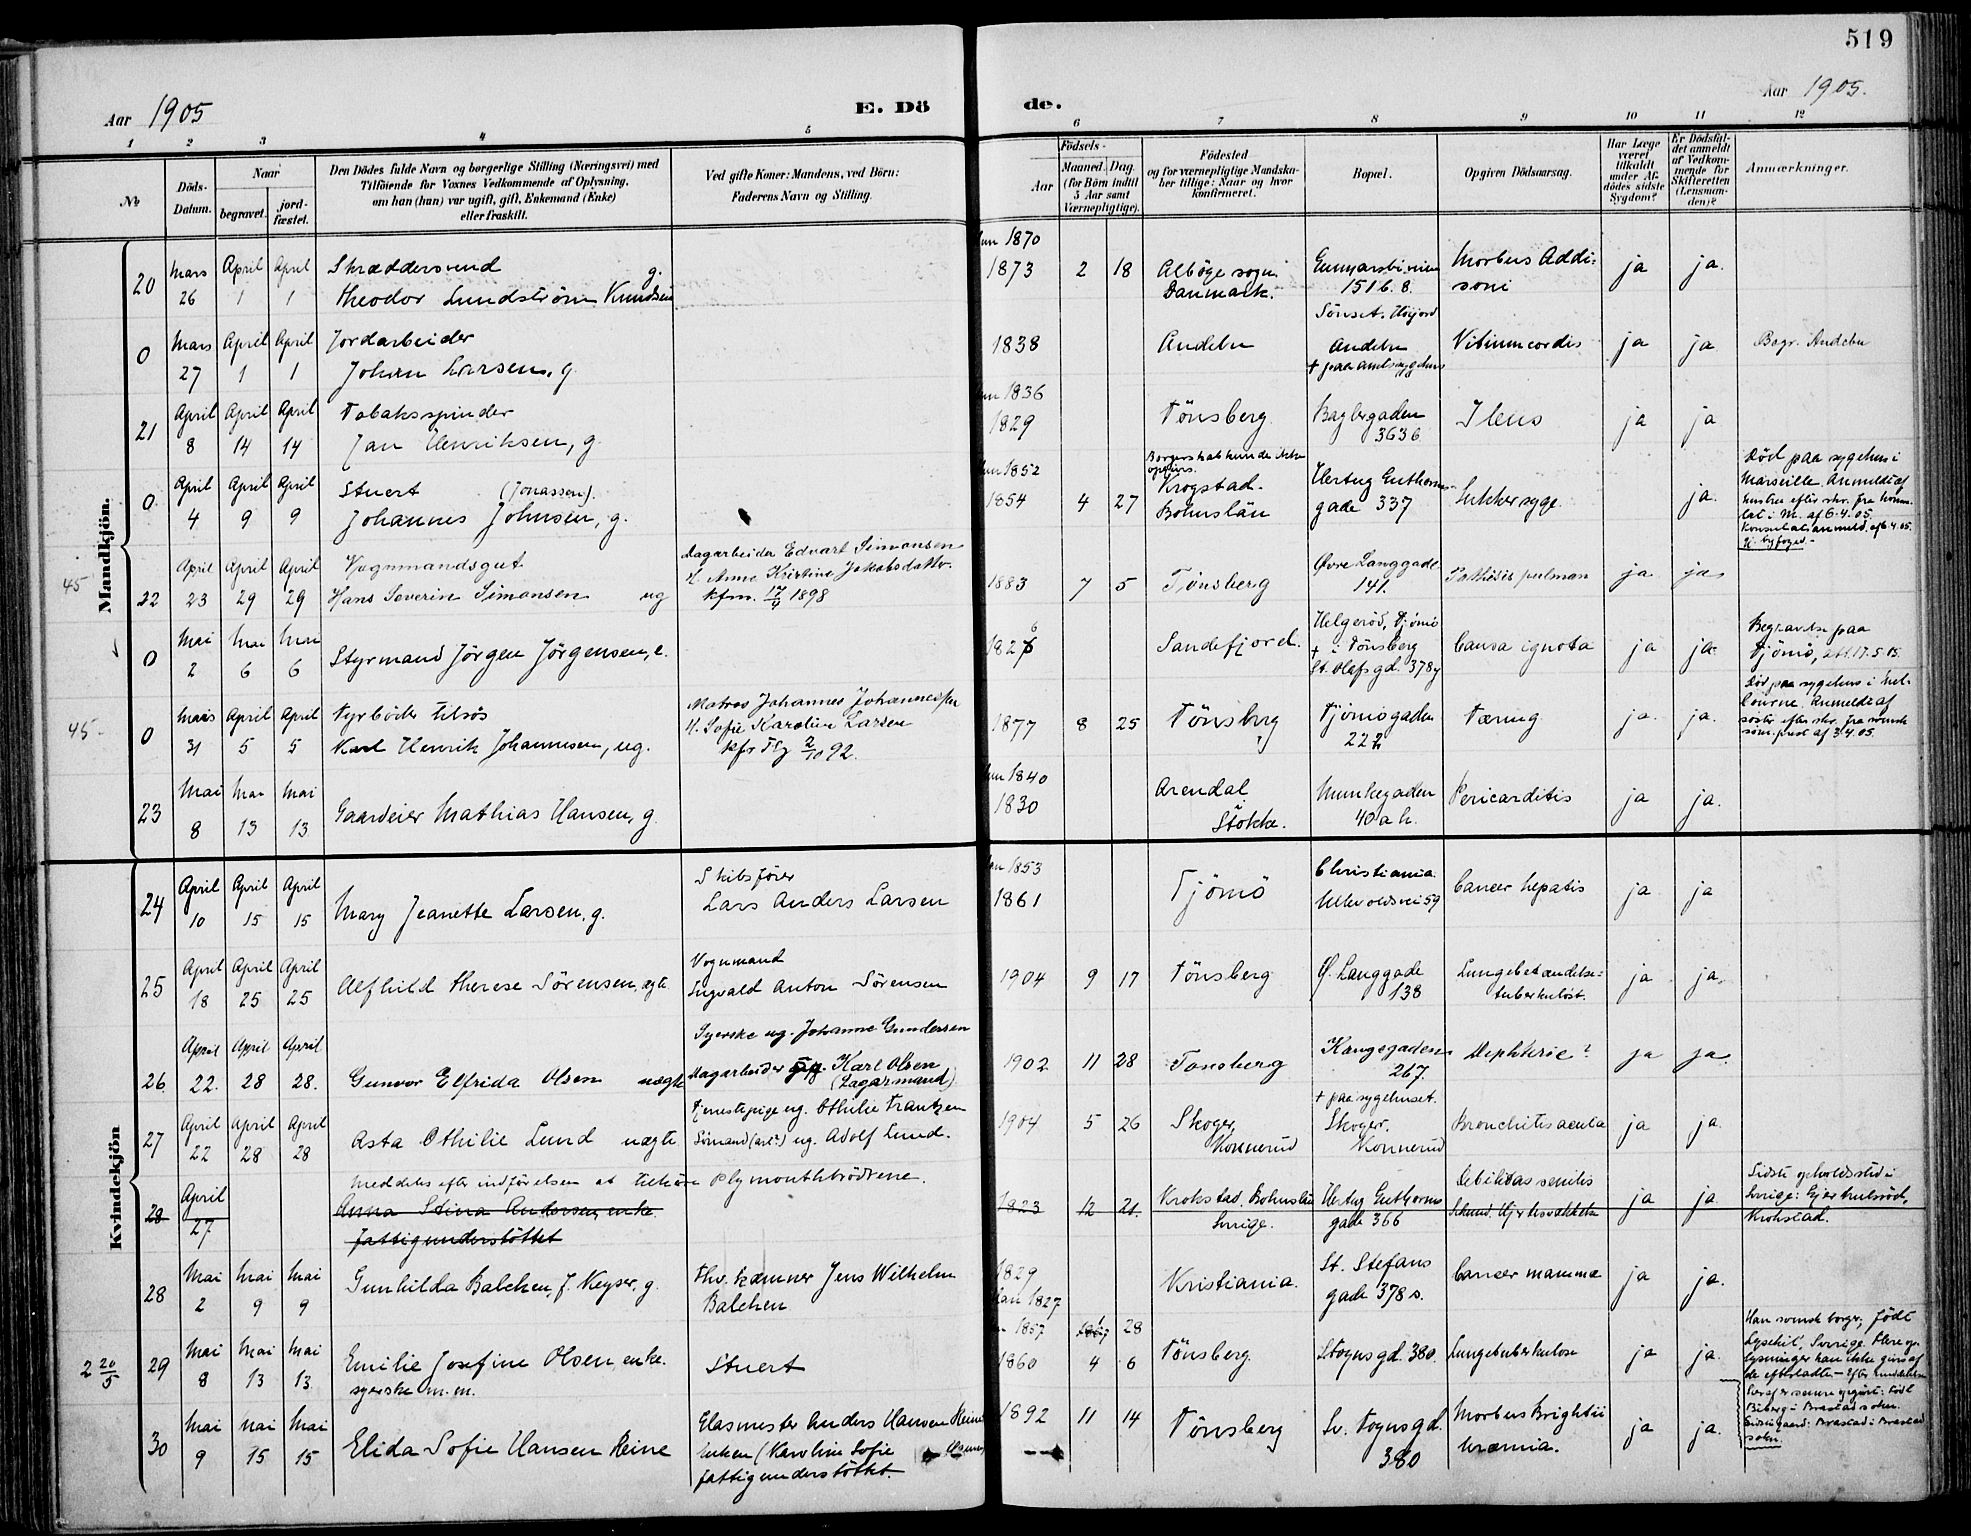 519
Aar 1905
E. Dö
de.
Aar 1905.
1 2 3 4 5 6 7 8 9 10 11 12
No
Döds-
Datum.
Naar
begravet.
jord-
fæstet.
Den Dödes fulde Navn og borgerlige Stilling (Næringsvei) med
Tilföiende for Voxnes Vedkommende af Oplysning,
om han (hun) var ugift, gift, Enkemand (Enke)
eller fraskilt.
Ved gifte Koner: Mandens, ved Börn:
Faderens Navn og Stilling.
Födsels-
Aar
Maaned. Dag.
(for Börn indtil
5 Aar samt
Værnepligtige).
Födested
og for værnepligtige Mandska-
ber tillige: Naar og hvor
konfirmeret.
Bopæl.
Opgiven Dödsaarsag.
Har Læge
været
tilkaldt
under Af-
dödes sidste
Sygdom?
Er Dödsfal-
det anmeldt
af Vedkom-
mende for
Skifteretten
(Lensman-
den)?
Anmærkninger.
Mandkjön.
20 Mars 26 April 1 April 1
Skræddersvend g.
Theodor Lundström Knudsen
1870
1873 2 18
Alböge sogn
Danmark.
1516.8.
Morbus Addi-
soni
ja ja.
0 Mars 27 April 1 April 1
Jordarbeider
Johan Larsen, g.
1838
Andebu
Sönset. Höijord
Andebu
+ paa amtssygehus
Vitium cordis
ja ja
Begr. Andebu
21 April 8 April 14 April 14
Tobaksspinder
Jan Henriksen, g.
1836
1829
Tönsberg
Bagbergaden
3636
Ileus
ja ja
0 April 4 April 9 April 9
Stuert (Jonassen).
Johannes Johnsen, g.
1852
1854 4 27
Krogstad.
Bohuslän
Hertug Guthorms-
gade 337
Sukkersyge.
ja.
Död paa sygehus i
Marseille. Anmeldt af
45
22 April 23 April 29 April 29
Vognmandsgut
Hans Severin Simonsen ug
Dagarbeider Edvart Simonsen
H. Anne Kristine Jakobsdatter.
kfm. 1898
1883 7 5
Tönsberg
Övre Langgade
141.
ja ja
0 Mai 2 Mai 6 Mai 6
Styrmand Jörgen Jörgensen, e.
1826
Sandefjord.
Helgeröd, Tjömö
+ i Tönsberg
St. Olafs gd. 378y
Causa ignota
ja ja.
Begravet paa
Tjömö, att. 17.5.05.
45-
0 Mars 31 April 5 April 5
Fyrböder tilsös
Karl Henrik Johannesen, ug.
Matros Johannes Johannessen
H. Sofie Karoline Larsen
1877 8 25
Tönsberg
Tjömögaden
222
Tæring
ja. ja.
23 Mai 8 Mai 13 Mai 13
Gaardeier Mathias Hansen, g.
1840
1830
Arendal
Stokke.
Munkegaden
40 a h.
Pericarditis
ja ja.
Kvindekjön
24 April 10 April 15 April 15
Mary Jeanette Larsen, g.
Skibsförer
Lars Anders Larsen
1853
1861
Tjömö
Christiania
Ullevoldsvei 59
Cancer hepatis
ja ja
25 April 18 April 25 April 25
Alfhild Therese Sörensen, ægte
Vognmand
Ingvald Anton Sörensen
1904 9 17
Tönsberg
Ö. Langgade
138
Lungebetændelse-
tuberkuløst.
ja ja.
26 April 22. April 28 April 28.
Gunvor Elfrida Olsen uægte
Syerske ug. Johanne Gundersen
Dagarbeider Karl Olsen
(Lagermand)
1902 11 28
Tönsberg
Kongegaden
267.
Diphterie?
ja ja.
27 April 22 April 28 April 28
Asta Othilie Lund uægte
Tjenestepige ug. Othilie Frantzen
Sömand ug. Adolf Lund.
1904 5 26
Skoger,
Konnerud
+ paa sygehuset.
Skoger,
Konnerud
Bronchitis acuta
ja ja.
Meddeltes efter indförelsen at tilhöre Plymouthbrödrene.
28 April 27
Anna Stina Andersen, enke.
fattigunderstöttet
1823 12 21.
Krokstad. Bohuslän
Sverige.
Hertug Guthorms
gade 366
Debilitas senilis
ja ja
Sidste opholdssted i
Sverige:
Krokstad.
28 Mai 2 Mai 9 Mai 9
Gunhilda Balchen, f. Keyser, g.
Fhv. kæmner Jens Wilhelm
Balchen
1829
1827
Kristiania.
St. Stefans
gade 378 s.
Cancer mamma
ja ja.
2 20/5
29 Mai 8 Mai 13 Mai 13
Emilie Josefine Olsen, enke.
syerske m.m.
Stuert
1857 28
1860 4 6
Tönsberg.
Stogns gd. 380.
Lungetuberkulose
ja ja.
Han svensk borger, födt
Lysekil, Sverige.
30 Mai 9 Mai 15 Mai 15
Elida Sofie Hansen Heine
Glasmester Anders Hansen Heine
Enken (Karoline Sofie
fattigunderstöttet.
1892 11 14
Tönsberg
Sv. Fogns gd.
380
Morbus Brightii
Uræmia.
ja ja.